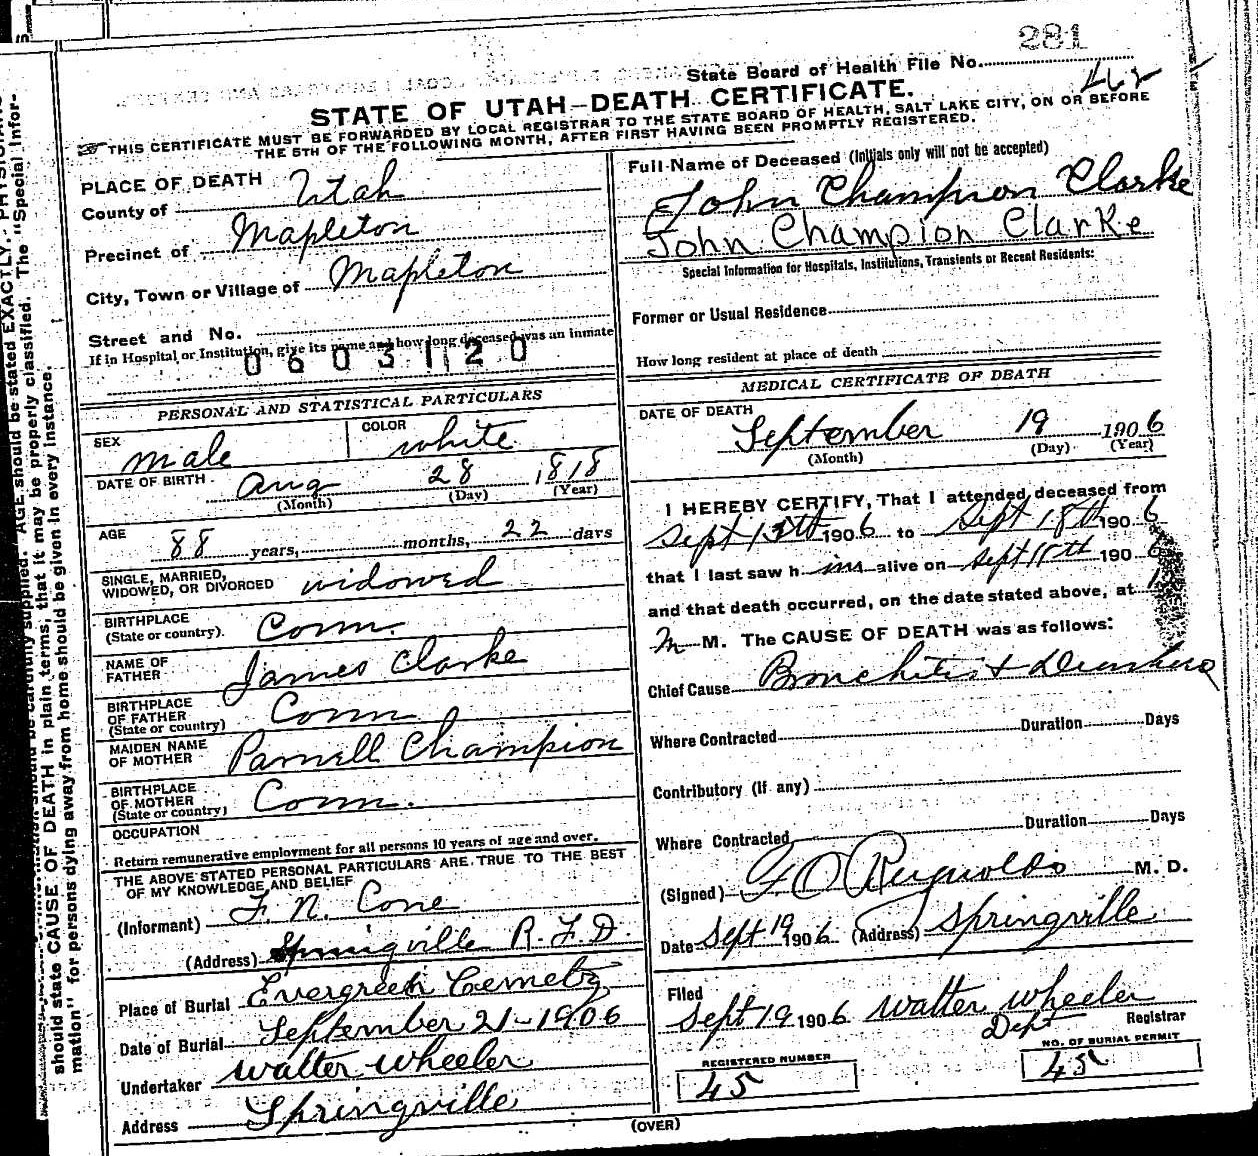 281
State Board of Health File No.
STATE OF UTAH—DEATH CERTIFICATE.
THIS CERTIFICATE MUST BE FORWARDED BY LOCAL REGISTRAR TO THE STATE BOARD OF HEALTH, SALT LAKE CITY, ON OR BEFORE
THE 5TH OF THE FOLLOWING MONTH, AFTER FIRST HAVING BEEN PROMPTLY REGISTERED.
PLACE OF DEATH
County of Utah
Precinct of Mapleton
City, Town or Village of Mapleton
Street and No.
If in Hospital or Institution, give its name and how long deceased was an inmate
0603120
PERSONAL AND STATISTICAL PARTICULARS
SEX male COLOR white
DATE OF BIRTH Aug 28 1818
(Month) (Day) (Year)
AGE 88 years, months, 22 days
SINGLE, MARRIED,
WIDOWED, OR DIVORCED widowed
BIRTHPLACE
(State or country). Conn.
NAME OF
FATHER James Clarke
BIRTHPLACE
OF FATHER
(State or country) Conn
MAIDEN NAME
OF MOTHER Parnell Champion
BIRTHPLACE
OF MOTHER
(State or country) Conn.
OCCUPATION
Return remunerative employment for all persons 10 years of age and over.
THE ABOVE STATED PERSONAL PARTICULARS ARE TRUE TO THE BEST
OF MY KNOWLEDGE AND BELIEF
(Informant) F. N. Cone
(Address) Springville R.F.D.
Place of Burial Evergreen
Date of Burial September 21-1906
Undertaker Walter Wheeler
Address Springville
Full Name of Deceased (Initials only will not be accepted)
John Champion Clarke
John Champion Clarke
Special Information for Hospitals, Institutions, Transients or Recent Residents:
Former or Usual Residence
How long resident at place of death
MEDICAL CERTIFICATE OF DEATH
DATE OF DEATH
September 19 1906
(Month) (Day) (Year)
I HEREBY CERTIFY, That I attended deceased from
Sept 1906 to Sept 18th 1906
that I last saw him alive on Sept 190
and that death occurred, on the date stated above, at
M. The CAUSE OF DEATH was as follows:
Chief Cause Bronchitis +
Where Contracted Duration Days
Contributory (If any)
Where Contracted Duration Days
(Signed) Reynolds M. D.
Date Sept 19 1906 (Address) Springville
Filed
Sept 19 1906 Walter Wheeler
Dept Registrar
REGISTERED NUMBER
45
NO. OF BURIAL PERMIT
45
(OVER)
should state CAUSE OF DEATH in plain terms, that it may be properly classified. The "Special Infor-
mation" for persons dying away from home should be given in every instance.